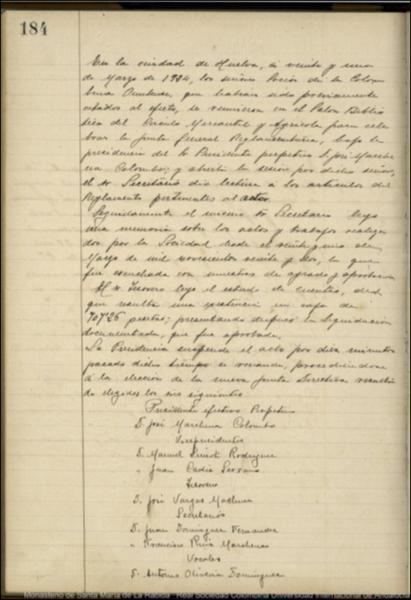 184
En la ciudad de Huelva, a veinte y uno
de Marzo de 1924, los señores Socios de la Colom
bina Onubense, que habian sido previamente
citados al efecto, se reunieron en el Salon Biblio
teca del Circulo Mercantil y Agricola para cele
brar la Junta General Reglamentaria, bajo la
presidencia del Sr Presidente perpetuo D. José Marche
na Colombo; y abierta la sesion por dicho señor,
el Sr Secretario dió lectura á los articulos del
Reglamento pertinentes al acto.
Seguidamente el mismo Sr Secretario leyó
una memoria sobre los actos y trabajos realiza
dos por la Sociedad desde el veintiuno de
Marzo de mil novecientos veinte y dos, la que
fue escuchada con muestras de agrado y aprobacion
El Sr Tesorero leyó el estado de cuentas, del
que resulta una existencia en caja de
707'25 pesetas; presentando despues la liquidacion
documentada, que fue aprobada.
La Presidencia suspende el acto por diez minutos
pasado dicho tiempo se reanuda, procediendose
á la eleccion de la nueva Junta Directiva resultan
do elegidos los señores siguientes
Presidente efectivo Perpetuo
D. José Marchena Colombo
Vicepresidentes
D. Manuel Siurot Rodriguez
" Juan Cadiz Serrano
Tesorero
D. José Vargas Machuca
Secretarios
D. Juan Dominguez Fernandez
" Francisco Ruiz Marchena
Vocales
D. Antonio Oliveira Dominguez
Monasterio de Santa María de La Rábida - Real Sociedad Colombina Universidad Internacional de Andalucía